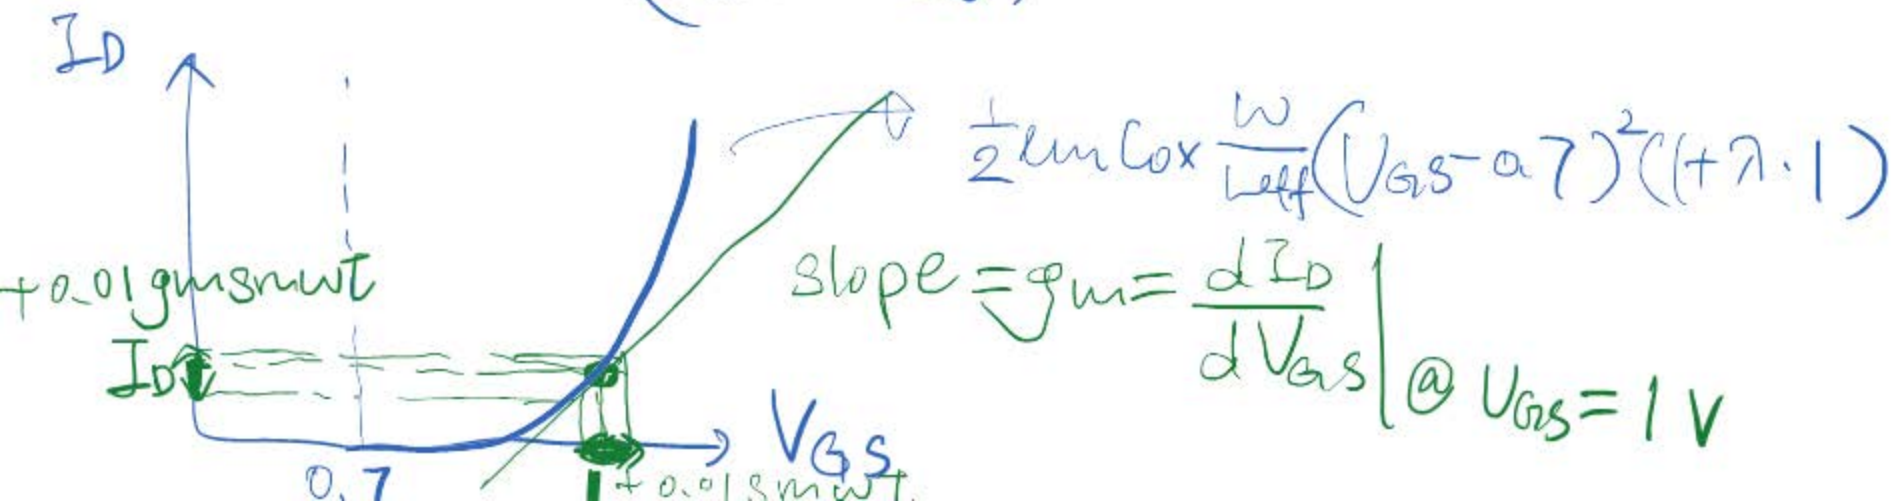 I_D
½ μn Cox W/Leff (V_GS - 0.7)² (1 + λ · 1)
+0.01 gm sin wt
slope = gm = dI_D / dV_GS | @ V_GS = 1 V
I_D
V_GS
0.7
1 + 0.01 sin wt